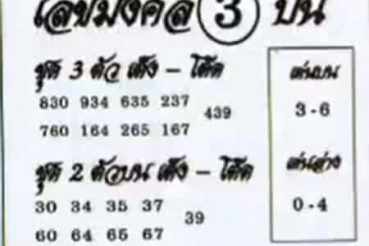 เลขมงคล 3 บน
ชุด 3 ตัว เต็ง - โต๊ด
830 934 635 237
439
760 164 265 167
ชุด 2 ตัวบน เต็ง - โต๊ด
30 34 35 37
39
60 64 65 67
เด่นบน
3-6
เด่นล่าง
0-4